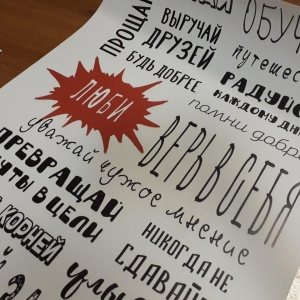 ОБУЧ
ПРОЩАЙ
ВЫРУЧАЙ
ДРУЗЕЙ
БУДЬ ДОБРЕЕ
путешес
РАДУЙС
КАЖДОМУ ДН
помни добр
ЛЮБИ
ВЕРЬ В СЕБЯ
уважай чужое мнение
ПРЕВРАЩАЙ
ТЫ В ЦЕЛИ
КОРНЕЙ
НИКОГДА НЕ
СДАВАЙ